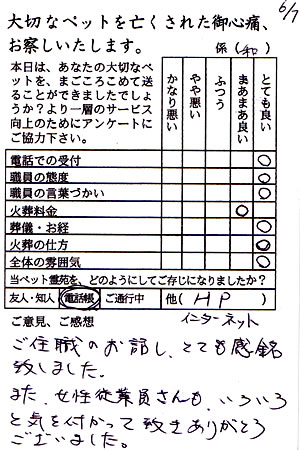 6/7
大切なペットを亡くされた御心痛、
お察しいたします。
係(和)
本日は、あなたの大切なペ
ットを、まごころこめて送
ることができましたでしょ
うか？より一層のサービス
向上のためにアンケートに
ご協力下さい。
かなり悪い やや悪い ふつう まあまあ良い とても良い
電話での受付 ○
職員の態度 ○
職員の言葉づかい ○
火葬料金 ○
葬儀・お経 ○
火葬の仕方 ○
全体の雰囲気 ○
当ペット霊苑を、どのようにしてご存じになりましたか？
友人・知人 電話帳 ご通行中 他( HP )
インターネット
ご意見、ご感想
ご住職のお話し、とても感銘
致しました。
また、女性従業員さんも、いろいろ
と気を付かって致きありがとう
ございました。